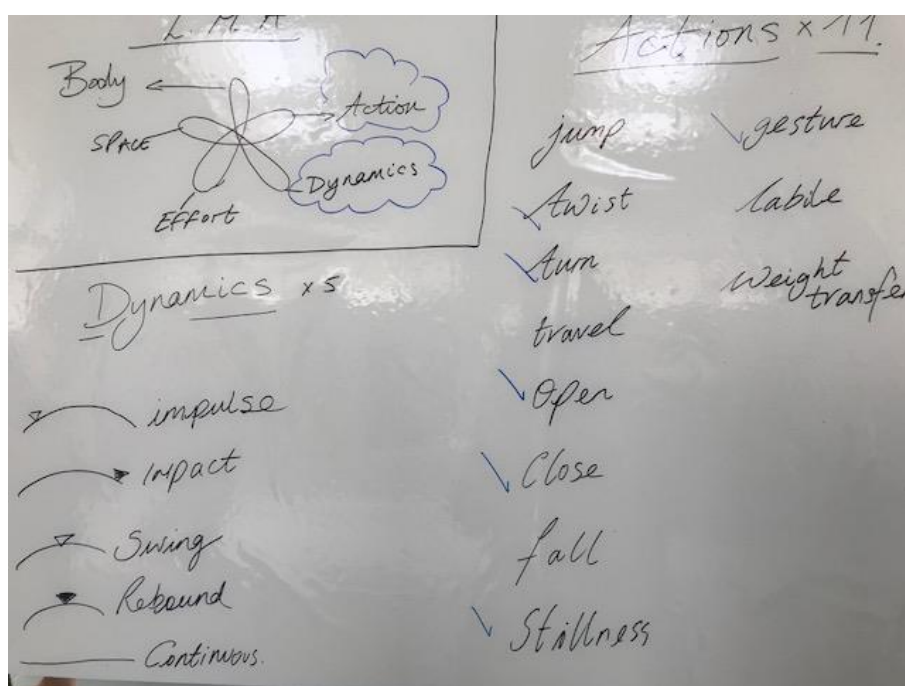 L.M.A
Body
Action
SPACE
Dynamics
EFFort
Dynamics x 5
impulse
impact
Swing
Rebound
Continuous.
Actions x 11.
jump
twist
turn
travel
Open
Close
fall
Stillness
gesture
labile
Weight
transfer